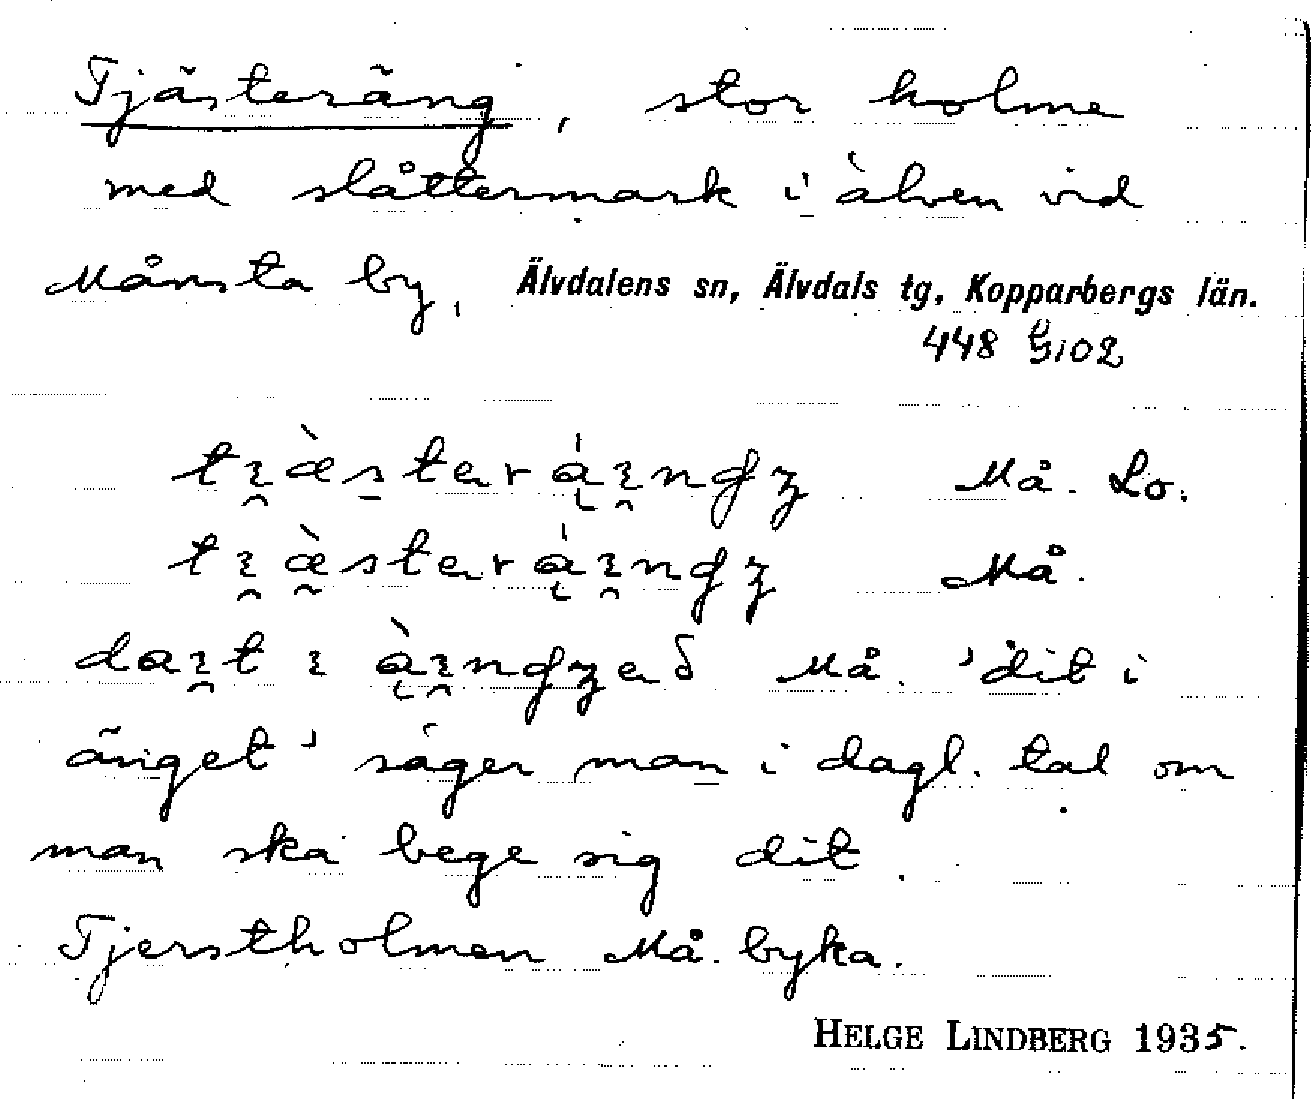 Tjästeräng, stor holme
med slåttermark i älven vid
Månsta by, Älvdalens sn, Älvdals tg, Kopparbergs län.
448
Må. Lo.
Må.
Må. 'dit i
änget' säger man i dagl. tal om
man ska bege sig dit.
Tjerstholmen Må. byka.
HELGE LINDBERG 1935.